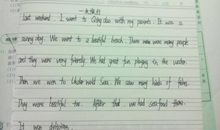 last weekend. I went to Qing dao with my parents. It was a
sunny day. We went to a beautiful beach. There were many people
and they were very friendly. We had great fun playing in the water.
Then we went to Under water World. We saw many kinds of fishes.
They were beautiful too. After that we had seafood there.
It was delicious.